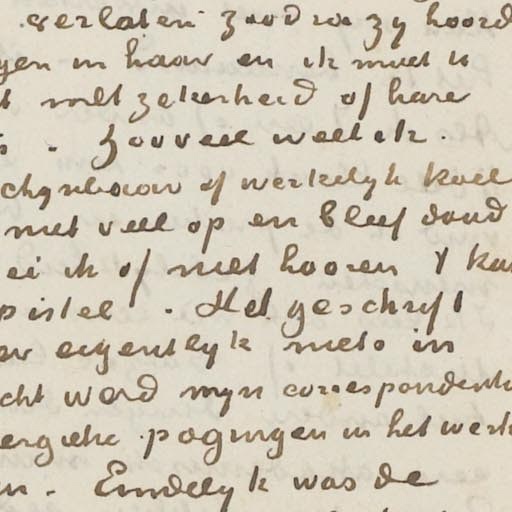 verlaten zoodra zy hoord
gen in haar en ik moet u
t met zekerheid of hare
s. Zooveel weet ik.
chynbaar of werkelyk koel
niet veel op en bleef daad
ei ik of niet hooren 't kan
pistel. Het geschrift
w eigentlyk niets in
cht werd myn correspondentie
ergieke pogingen in het werk
n. Eindelyk was de